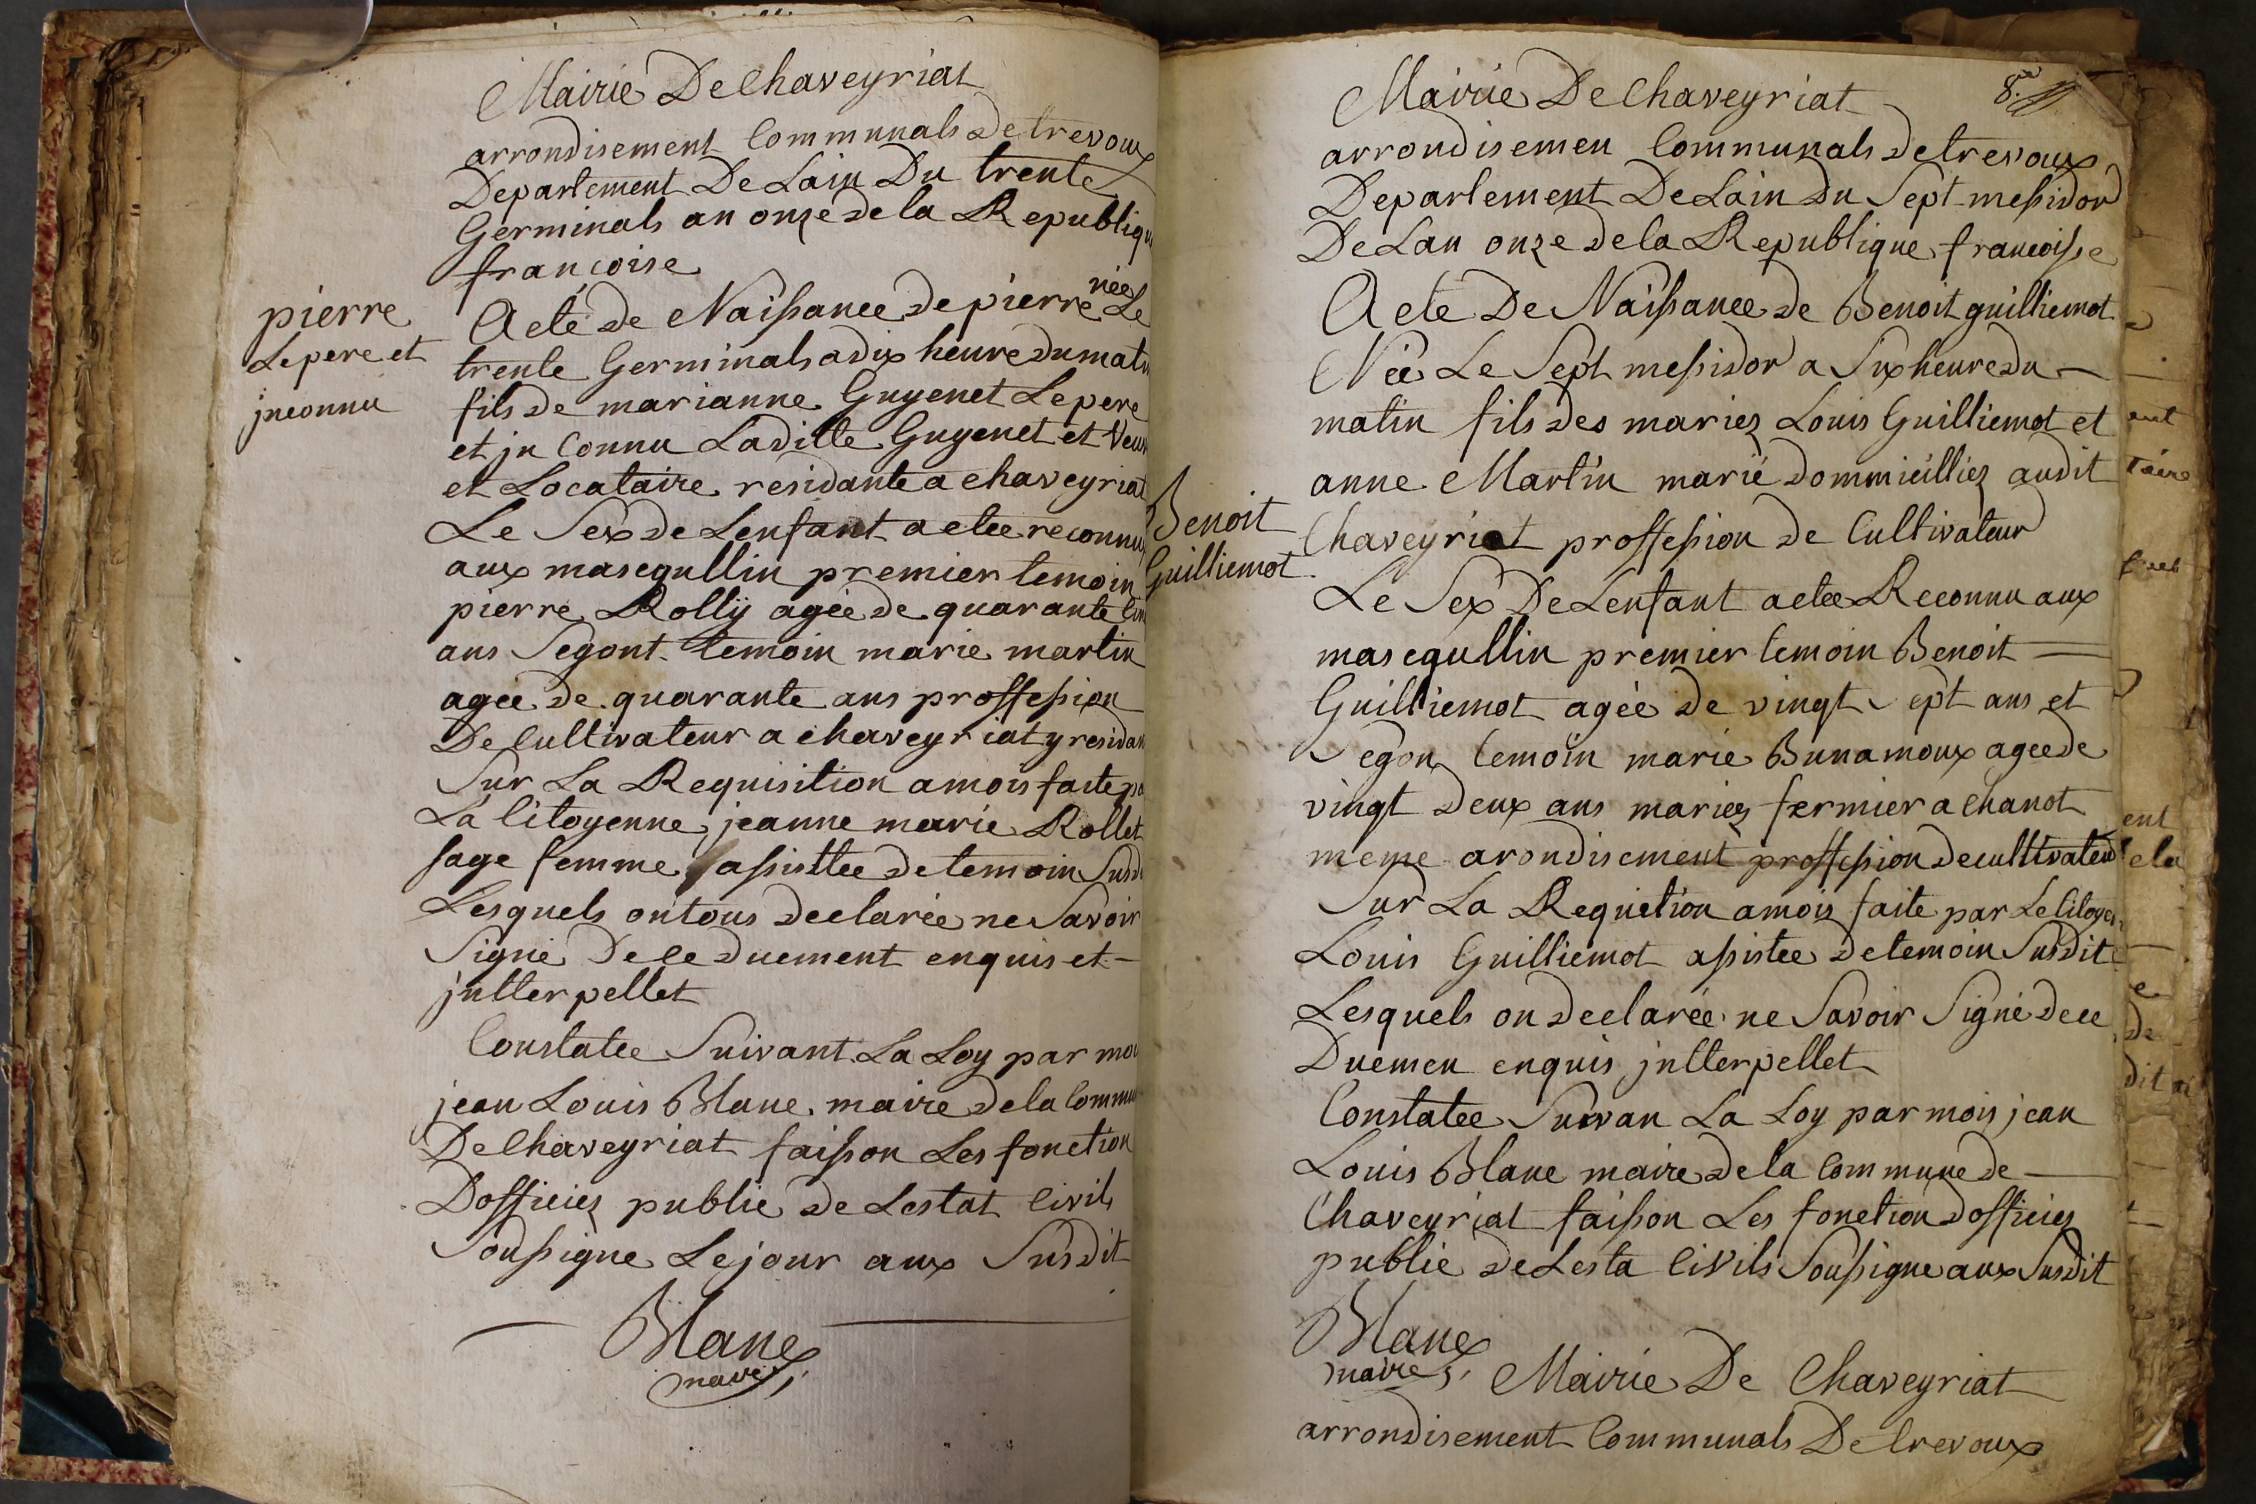 Mairie De Chaveyriat
arrondisement Communals de trevoux
Departement De Lain Du trente
Germinals an onze de la Republiqu
francoise
pierre
Le pere et
jnconnu
Acte de Naissance de pierre née Le
trente Germinals a dix heure du matin
fils de marianne Guyenet Le pere
et jn Connu Laditte Guyenet et veuv
et Locataire residante a chaveyriat
Le Sex de Lenfant a etee reconnu
aux masequllin premier temoin
pierre Rollÿ agée de quarante cin
ans Segont temoin marie martin
agée de quarante ans proffession
De Cultivateur a chaveyriat y residan
Sur La Requisition a mois faite pa
La Citoyenne jeanne marie Rollet
sage femme assisttee de temoin Susd
Lesquels on tous declarée ne Savoir
Signé De ce duement enquis et
jntterpellet
Constatee Suivant La Loy par moi
jean Louis Blanc maire de la Commu
De Chaveyriat faisson Les fonction
Dofficiez public de Lestat Civils
Soussigne Le jour aux Susdit
Blanc
maire
8.e
Mairie De Chaveyriat
arrondisemen Communals de trevoux
Departement De Lain du Sept messidor
De Lan onze de la Republique francoisse
Acte De Naissance de Benoit guilliemot
Née Le Sept messidor a Six heure du
matin fils des mariez Louis Guilliemot et
anne Martin marié dommicilliez audit
Benoit
Guilliemot
Chaveyriat proffession de Cultivateur
Le Sex De Lenfant a etee Reconnu aux
masequllin premier temoin Benoit
Guilliemot agée de vingt Sept ans et
Segon temoin marie Bunamoux agee de
vingt deux ans mariez fermier a Chanot
meme arondisement proffession de cultivateur
Sur La Requetion a mois faite par Le Citoyen
Louis Guilliemot assistee de temoin Susdit
Lesquels on declarée ne Savoir Signé de ce
Duemen enquis jntterpellet
Constatee Suivan La Loy par mois jean
Louis Blanc maire de la Commune de
Chaveyriat faisson Les fonction dofficiez
public de Lesta Civils Soussigne aux Susdit
Blanc
maire
Mairie De Chaveyriat
arrondisement Communals De trevoux